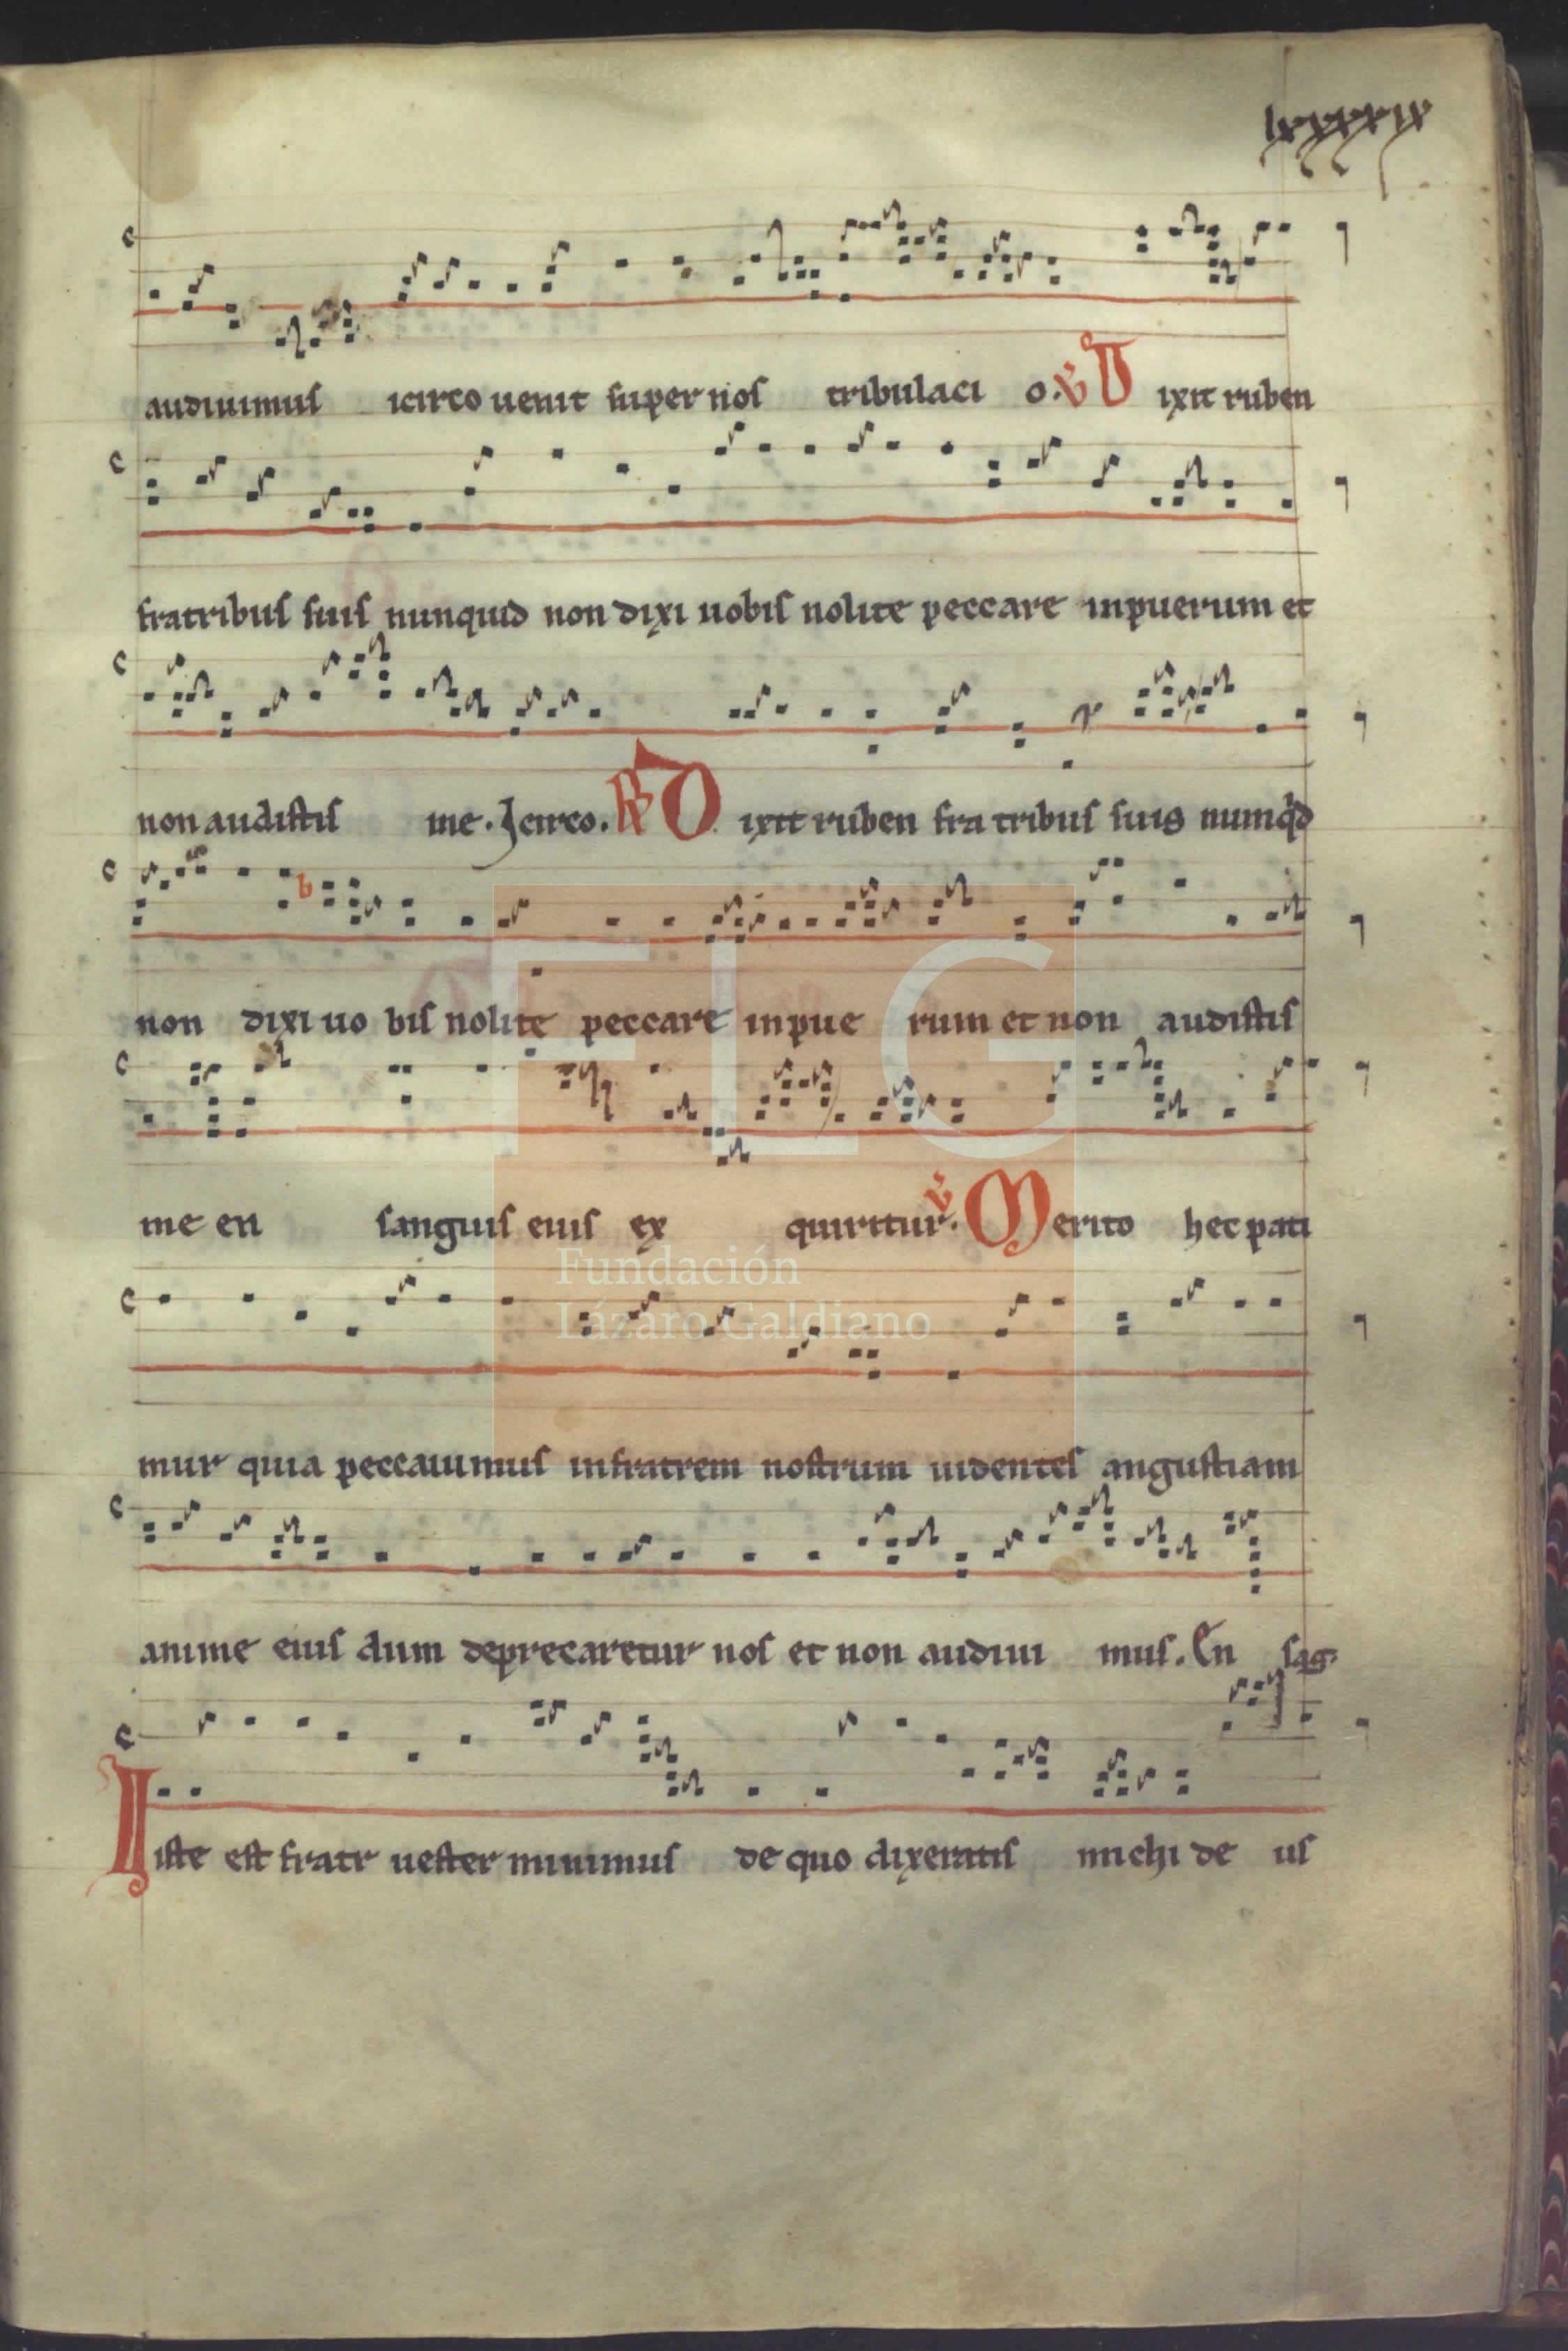 lxxxxix
audiuimus icirco uenit super nos tribulaci o. V Dixit ruben
fratribus suis nunquid non dixi uobis nolite peccare inpuerum et
non audistis me. Icirco. R Dixit ruben fratribus suis numqd
non dixi uo bis nolite peccare inpue rum et non audistis
me en sanguis eius ex quiritur. V Merito hec pati
mur quia peccauimus infratrem nostrum uidentes angustiam
anime eius dum deprecaretur nos et non audiui mus. En sag
Iiste est fratr uester minimus de quo dixeratis michi de us
FLG
Fundación
Lázaro Galdiano